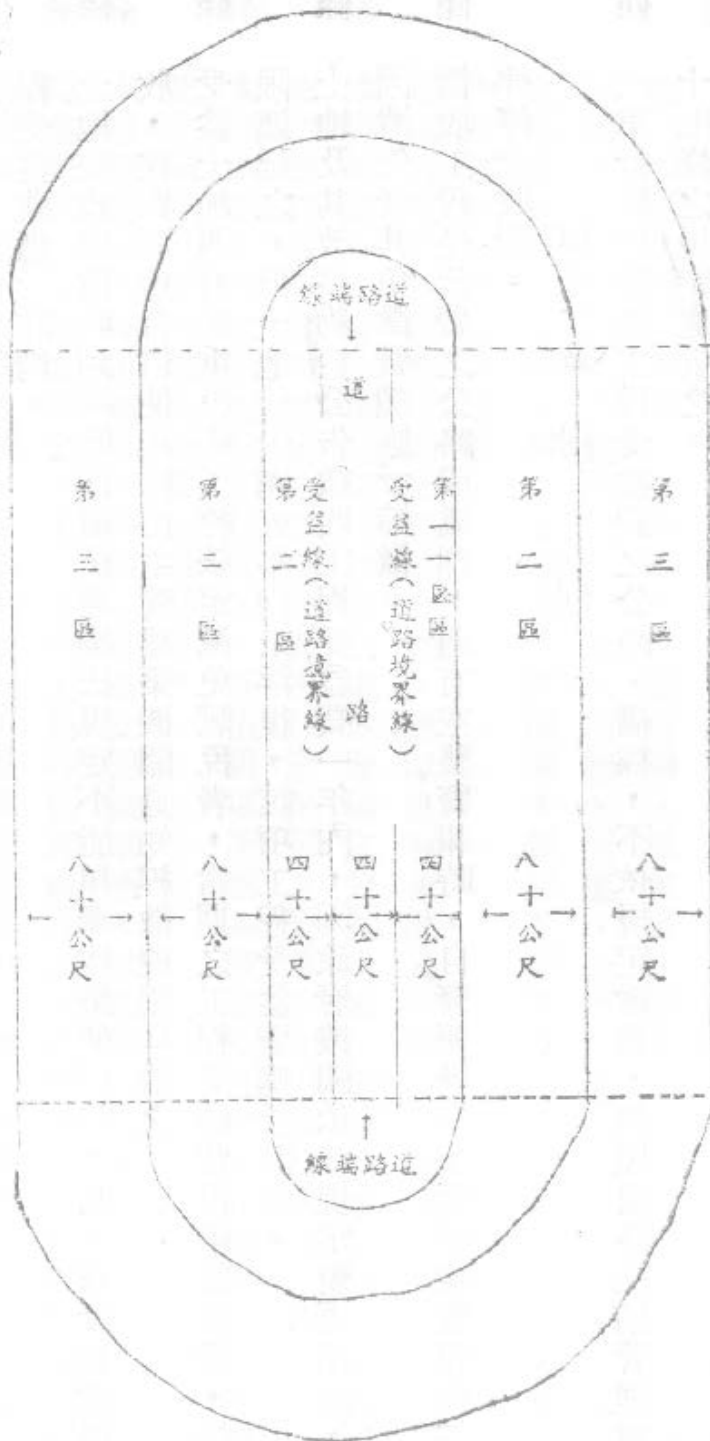 道路端線
第三區
第二區
第一區區
受益線(道路境界線)
道路
受益線(道路境界線)
第二區
第二區
第三區
八十公尺
八十公尺
四十公尺
四十公尺
四十公尺
八十公尺
八十公尺
道路端線